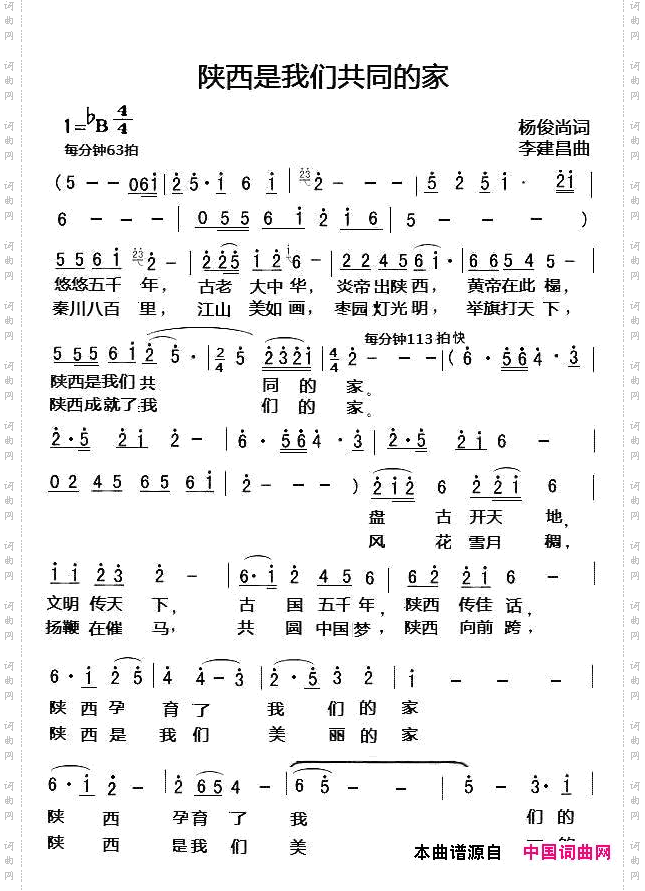 陕西是我们共同的家
1=♭B 4/4
杨俊尚词
每分钟63拍
李建昌曲
(5 - - 061 | 2 5· 1 6 1 | 23 2 - - | 5 2 5· 21 |
6 - - | 0 5 5 6 1 2 1 6 | 5 - - )
5 5 5 6 1 23 2 - | 2 2 5 1 2 1 6 - | 2 2 4 5 6 1· | 6 6 5 4 5 - |
悠悠五千 年, 古老 大中 华, 炎帝 出陕西, 黄帝在此 榻,
秦川八百 里, 江山 美如 画, 枣园 灯光 明, 举旗打天 下,
每分钟113拍 快
5 5 5 6 1 2 5· | 2/4 5 2 3 2 1 | 4/4 2 - - ( 6· 5 6 4· 3 |
陕西是我们 共 同 的 家。
陕西成就了 我 们 的 家。
2· 5 2 1 2 - | 6· 5 6 4· 3 | 2· 5 2 1 6 - |
0 2 4 5 6 5 6 1 | 2 - - ) 2 1 2 6 2 2 1 6 |
盘 古 开天 地,
风 花 雪月 稠,
1 1 2 3 2 - | 6· 1 2 4 5 6 | 6 2 2 1 6 - |
文明 传天 下, 古 国 五千 年, 陕西 传佳 话,
扬鞭 在催 马, 共 圆 中国 梦, 陕西 向前 跨,
6· 1 2 5 | 4 4 - 3 | 2· 5 3 2 | 1 - - - |
陕 西 孕 育 了 我 们 的 家
陕 西 是 我 们 美 丽 的 家
6· 1 2 - | 2 6 5 4 - | 6 5 - - | 5 - 3· 1 |
陕 西 孕育 了 我 们 的
陕 西 是我 们 美
本曲谱源自 中国词曲网